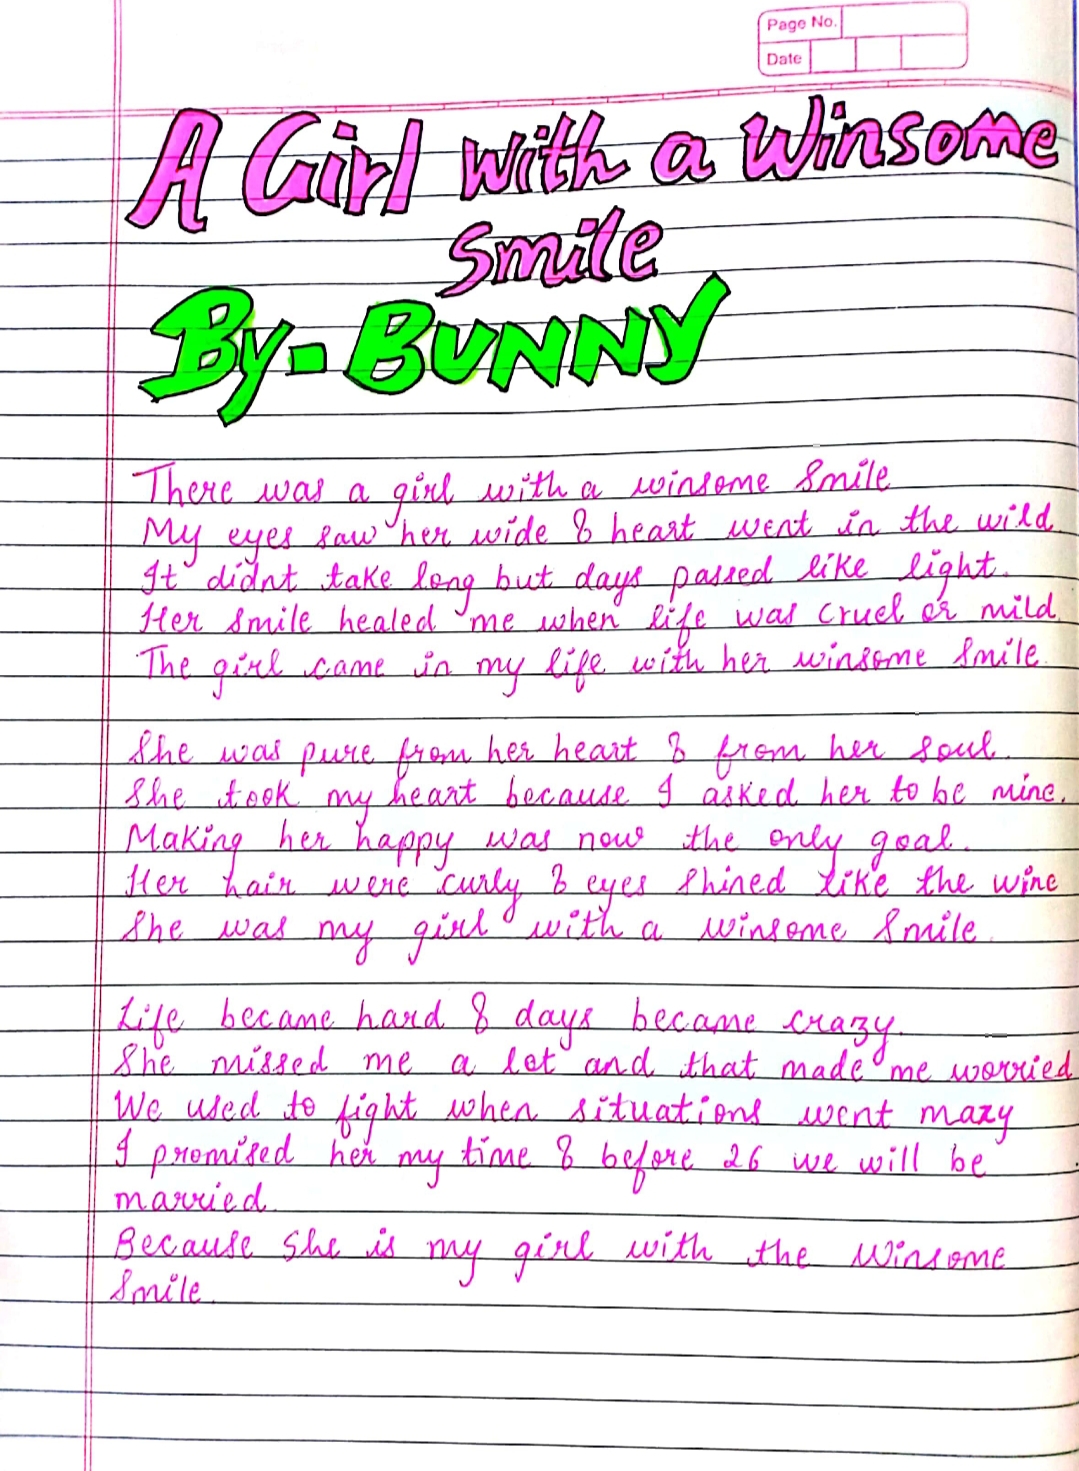 Page No.
Date
A Girl with a Winsome
Smile
By- BUNNY
There was a girl with a winsome Smile
My eyes saw her wide & heart went in the wild
It didnt take long but days passed like light.
Her smile healed me when life was cruel or mild.
The girl came in my life with her winsome smile.
She was pure from her heart & from her soul.
She took my heart because I asked her to be mine.
Making her happy was now the only goal.
Her hair were curly & eyes shined like the wine
She was my girl with a winsome Smile.
Life became hard & days became crazy.
She missed me a lot and that made me worried
We used to fight when situations went mazy
I promised her my time & before 26 we will be
married.
Because she is my girl with the Winsome
Smile.